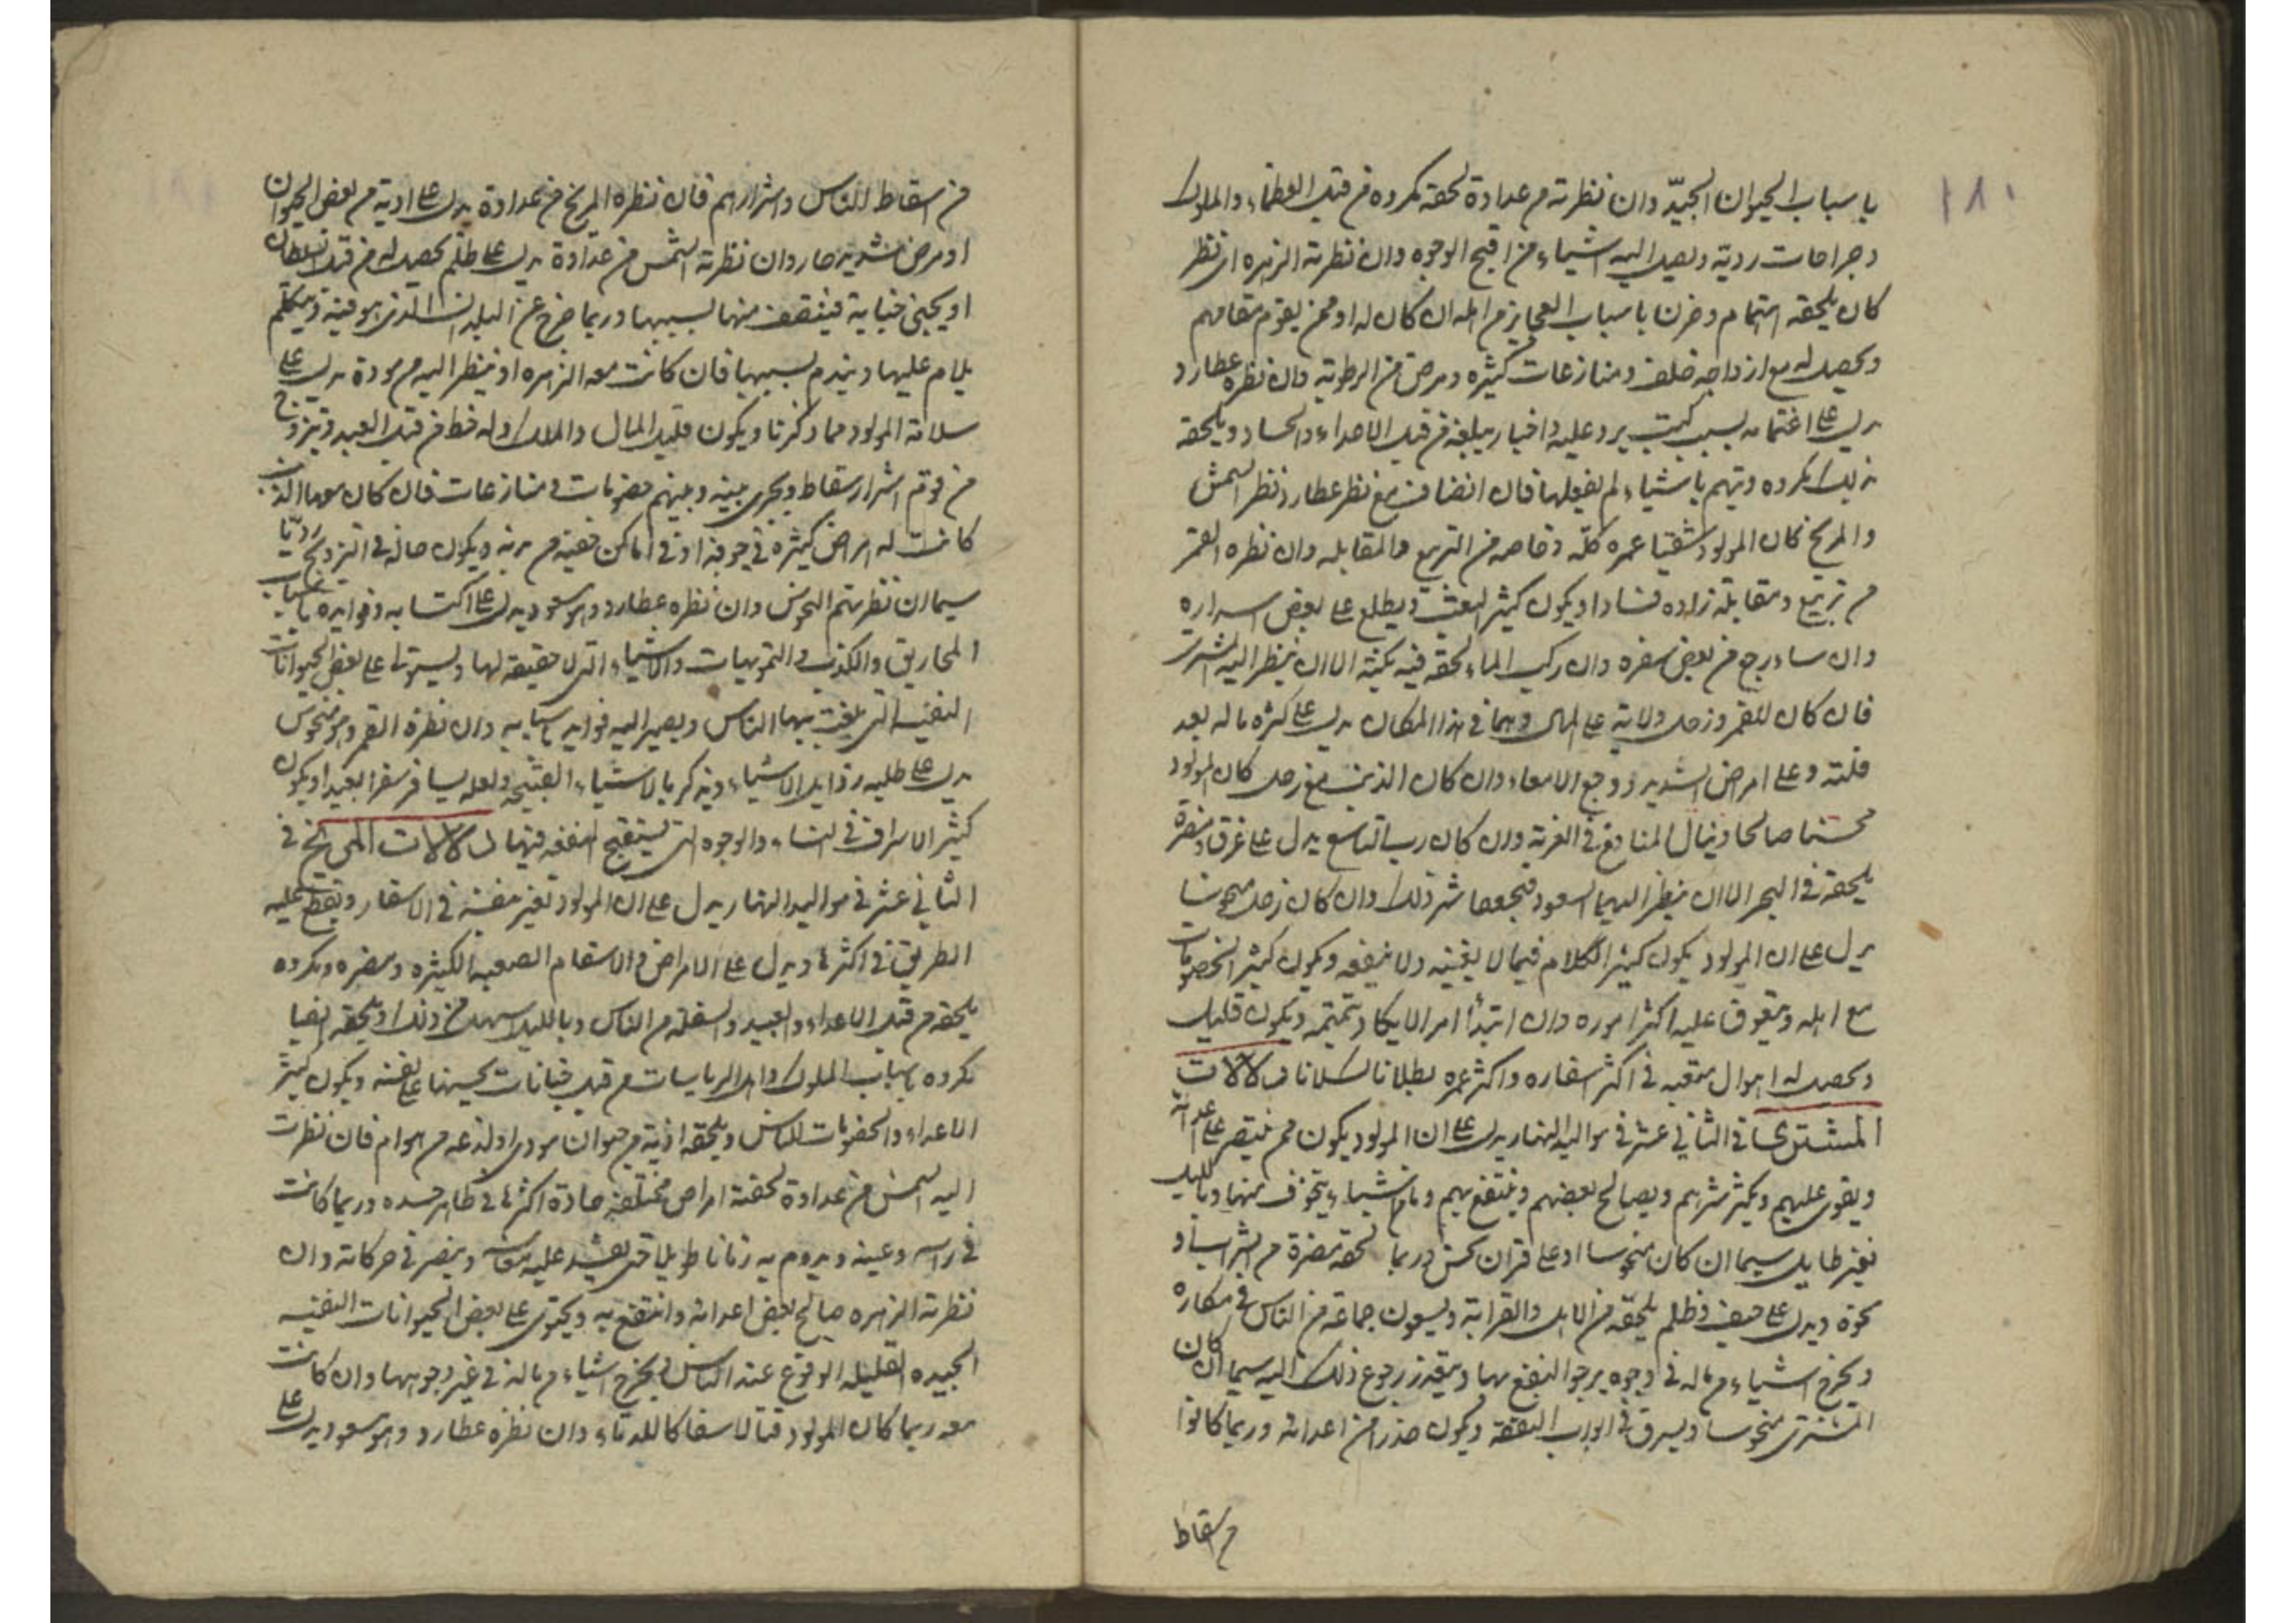 ١٨١
باسباب الحيوان الجيّد وان نظرته من عداوة لحقه مكروه من قبل العظماء والملوك
وجراحات رديّة ويصل اليه اشياء من اقبح الوجوه وان نظرته الزهره اى نظر
كان يلحقه اهتمام وحزن باسباب العجايز من اهله ان كان له او ممن يقوم مقامهم
ويحصل له مع ازواجه خلف ومنازعات كثيره ومرض من الرطوبة وان نظره عطارد
يدل على اغتمامه بسبب كتب يرد عليه واخبار يبلغه من قبل الاعداء والحساد ويلحقه
بذلك مكروه ويتهم باشياء لم يفعلها فان انضاف مع نظر عطارد نظر الشمس
والمريخ كان المولود شقيا عمره كلّه وخاصه من التربيع والمقابله وان نظره القمر
من تربيع ومقابلة زاده فسادا ويكون كثير البعث ويطلع على بعض اسراره
وان سافر رجع من بعض سفره وان ركب الماء لحقه فيه نكبة الا ان ينظر اليه المشترى
فان كان للقمر وزحل ولاية على المال وهما فى هذا المكان يدل على كثره ماله بعد
قلته وعلى امراض الشديد ووجع الامعاء وان كان الذنب مع زحل كان المولود
محسنا صالحا وينال المنافع فى الغربة وان كان رب التاسع يدل على غرق ومضرة
يلحقه فى البحر الا ان ينظر اليهما السعود فيجعها شر ذلك وان كان زحل منحوسا
يدل على ان المولود يكون كثير الكلام فيما لا يعنيه ولا ينفعه ويكون كثير الخصومات
مع اهله ويتعوق عليه اكثر اموره وان ابتدأ امر الا يكاد يتمتمه ويكون قليل
ويحصل له اهوال متعبه فى اكثر اسفاره واكثر عمره بطلانا كسلانا دلالات
المشترى فى الثانى عشر فى مواليد النهار يدل على ان المولود يكون ممن ينتصر على اعدائه
ويقوى عليهم ويكثر شرهم ويصالح بعضهم وينتفع بهم ويامن اشياء يتخوف منها وبالليل
بغير طايل سيما ان كان منحوسا او على قران نحس وربما لحقه مضرة من اشراف او
نحوه ويدل على حيف وظلم يلحقه من الاهل والقرابة ويسعون جماعة من الناس فى مكاره
ويخرج اشياء من ماله فى وجوه يرجو النفع بها ويتعذر رجوع ذلك اليه سيما ان كان
المشترى منحوسا ويسرق فى ابواب النفقة ويكون حذرا من اعدائه وربما كانوا
من سقاط
من اسقاط الناس واشرارهم فان نظره المريخ من عداوة يدل على اذية من بعض الحيوان
او مرض شديد حار وان نظرته الشمس من عداوة يدل على ظلم يحصل له من قبل السلطان
او يجنى جناية فيثقف منها بسببها وربما خرج عن البلد الذى هو فيه ويتكلم
يلام عليها ويندم بسببها فان كانت معه الزهره او ينظر اليه من مودة يدل على
سلامة المولود مما ذكرنا ويكون قليل المال والملك وله حظ من قبل العبيد ويتزوج
من قوم اشرار سقاط ويجرى بينه وبينهم خصومات ومنازعات فان كان معها الذنب
كانت له امراض كثيره فى جوفه او فى اماكن خفيه من بدنه ويكون حاله فى التزويج رديّا
سيما ان نظرتهم النحوس وان نظره عطارد وهو مسعود يدل على اكتسابه وفوايده باسباب
المخاريق والكذب والتمويهات والاشياء التى لا حقيقة لها ويستولى على بعض الحيوانات
النفيسة التى يلعب بها الناس ويصير اليه فوايد باسبابه وان نظره القمر وهو منحوس
يدل على طلبه رذايل الاشياء ويذكر بالاشياء القبيحه ولعله يسافر سفرا بعيدا ويكون
كثير الاسراف فى النساء والوجوه التى يستقبح النفقه فيها دلالات المريخ فى
الثانى عشر فى مواليد النهار يدل على ان المولود تغير نفسه فى الاسفار ويقطع عليه
الطريق فى اكثرها ويدل على الامراض والاسقام الصعبه الكثيره ومضره ومكروه
يلحقه من قبل الاعداء والعبيد والسفلة من الناس وبالليل اسهل من ذلك او يلحقه ايضا
مكروه باسباب الملوك واهل الرياسات من قبل خيانات يجنيها على نفسه ويكون كثير
الاعداء والخصومات للناس ويلحقه اذية من حيوان موذى او لدغه من هوام فان نظرت
اليه الشمس من عداوة لحقته امراض مختلفة حادة اكثرها فى ظاهر جسده وربما كانت
فى راسه وعينه ويدوم به زمانا طويلا حتى يفسد عليه حواسه ويضر فى حركاته وان
نظرته الزهره صالح بعض اعدائه وانتفع به ويحتوى على بعض الحيوانات النفيسه
الجيده القليله الوقوع عند الناس ويخرج اشياء من ماله فى غير وجوهها وان كانت
معه ربما كان المولود قتالا سفاكا للدماء وان نظره عطارد وهو مسعود يدل على